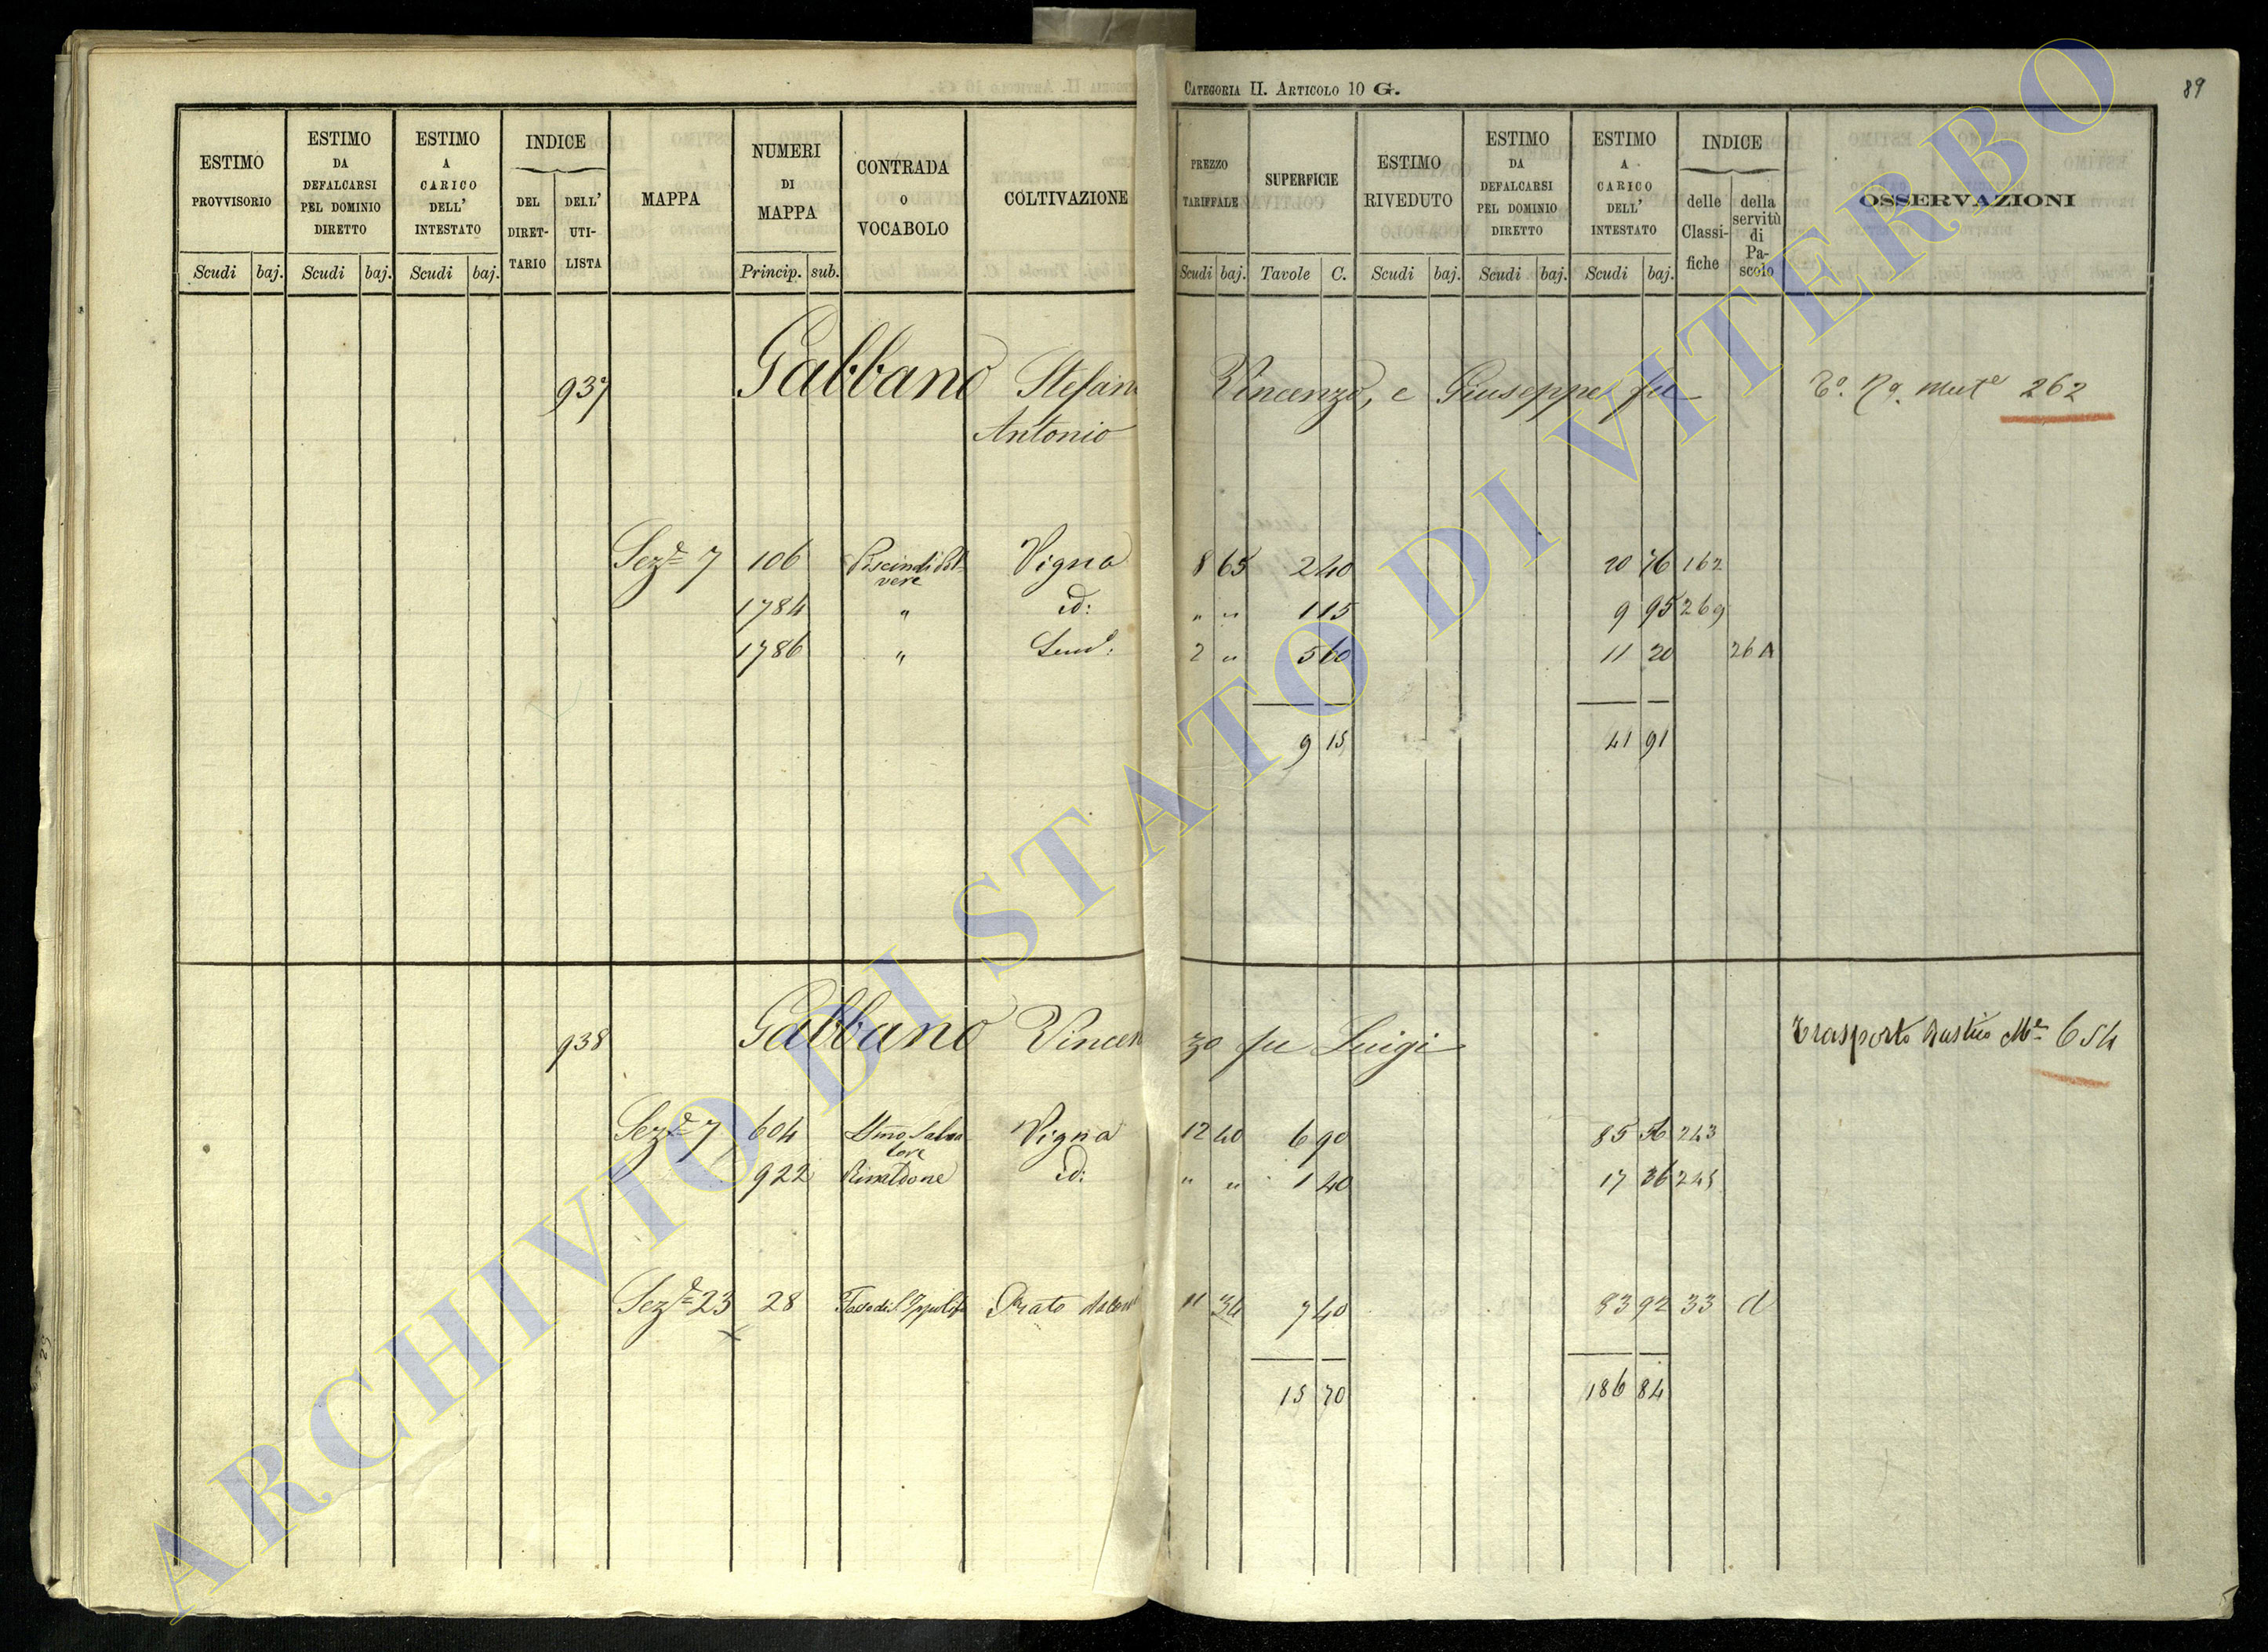 CATEGORIA II. ARTICOLO 10 G.
89
ESTIMO PROVVISORIO
ESTIMO DA DEFALCARSI PEL DOMINIO DIRETTO
ESTIMO A CARICO DELL' INTESTATO
INDICE
DEL DIRETTARIO
DELL' UTILISTA
MAPPA
NUMERI DI MAPPA
CONTRADA O VOCABOLO
COLTIVAZIONE
PREZZO TARIFFALE
SUPERFICIE
ESTIMO RIVEDUTO
ESTIMO DA DEFALCARSI PEL DOMINIO DIRETTO
ESTIMO A CARICO DELL' INTESTATO
INDICE
delle Classifiche
della servitù di Pascolo
OSSERVAZIONI
Scudi baj. Scudi baj. Scudi baj. Princip. sub. Scudi baj. Tavole C. Scudi baj. Scudi baj. Scudi baj.
937 Gabbano Stefano Vincenzo, e Giuseppe fu 262
Antonio
Sez.e 7 106 Vigna 8 65 2 40 20 76 162
1784 " id: " " 1 15 9 95 269
1786 " Sem.: 2 " 5 60 11 20 26 A
9 15 41 91
938 Gabbano Vincenzo fu Luigi Trasporto Rustico 654
Sez.e 7 604 Vigna 12 40 6 90 85 56 243
922 Rinaldone id: " " 1 40 17 36 245
Sez.e 23 28 Prato 11 34 7 40 83 92 33 d
15 70 186 84
ARCHIVIO DI STATO DI VITERBO